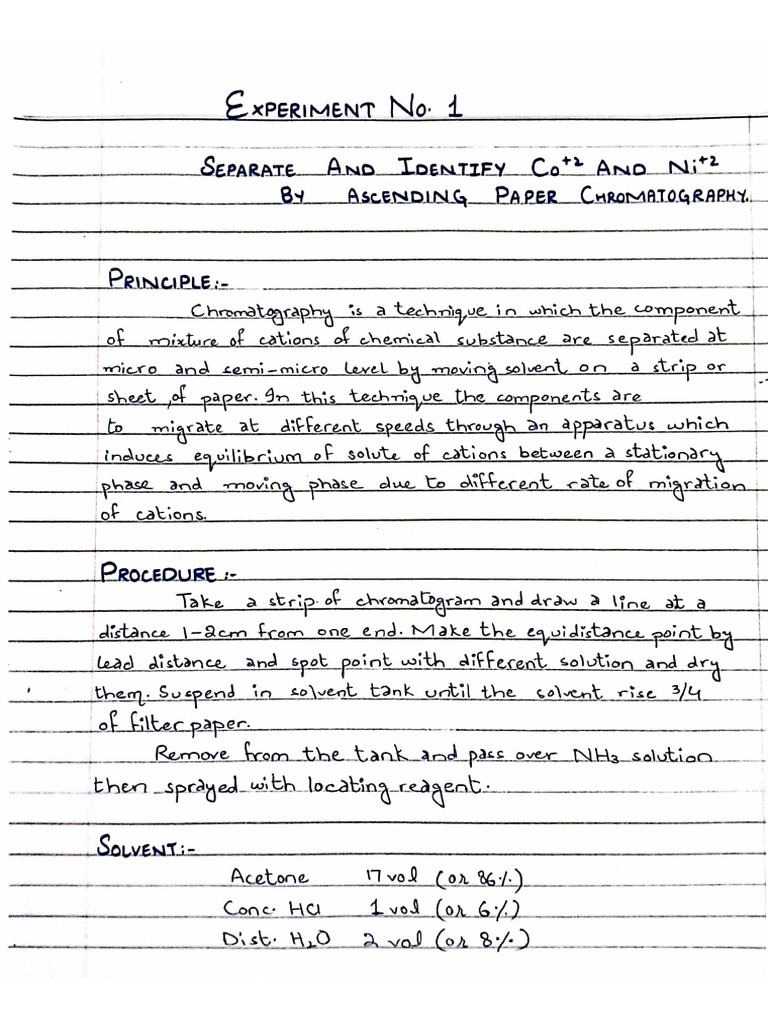 EXPERIMENT No. 1
SEPARATE AND IDENTIFY Co⁺² AND Ni⁺²
BY ASCENDING PAPER CHROMATOGRAPHY.
PRINCIPLE:-
Chromatography is a technique in which the component
of mixture of cations of chemical substance are separated at
micro and semi-micro level by moving solvent on a strip or
sheet, of paper. In this technique the components are
to migrate at different speeds through an apparatus which
induces equilibrium of solute of cations between a stationary
phase and moving phase due to different rate of migration
of cations.
PROCEDURE:-
Take a strip of chromatogram and draw a line at a
distance 1-2cm from one end. Make the equidistance point by
lead distance and spot point with different solution and dry
them. Suspend in solvent tank until the solvent rise 3/4
of filter paper.
Remove from the tank and pass over NH₃ solution
then sprayed with locating reagent.
SOLVENT:-
Acetone 17 vol (or 86%)
Conc. HCl 1 vol (or 6%)
Dist. H₂O 2 vol (or 8%)